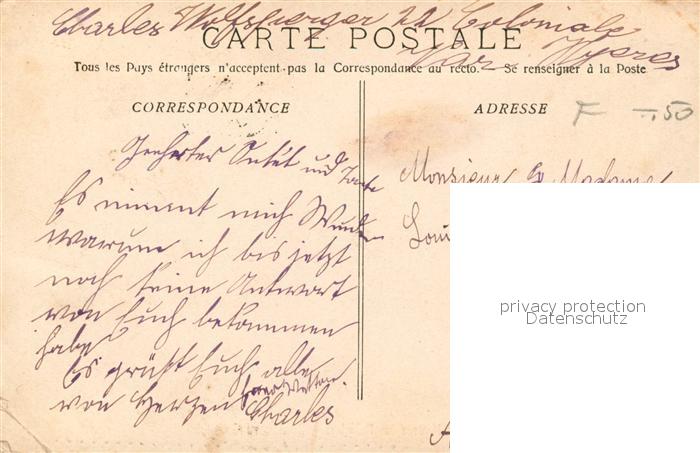 Charles Wolfsperger 22 Coloniale
CARTE POSTALE
Var Hyeres
Tous les Pays étrangers n'acceptent pas la Correspondance au recto. Se renseigner à la Poste
CORRESPONDANCE
Geehrter Onkel und Tante
Es nimmt mich Wunder
warum ich bis jetzt
noch keine Antwort
von Euch bekommen
habe
Es grüßt Euch alle
von Herzen Euer
Charles
ADRESSE
F -.50
Monsieur & Madame
Loui
privacy protection
Datenschutz